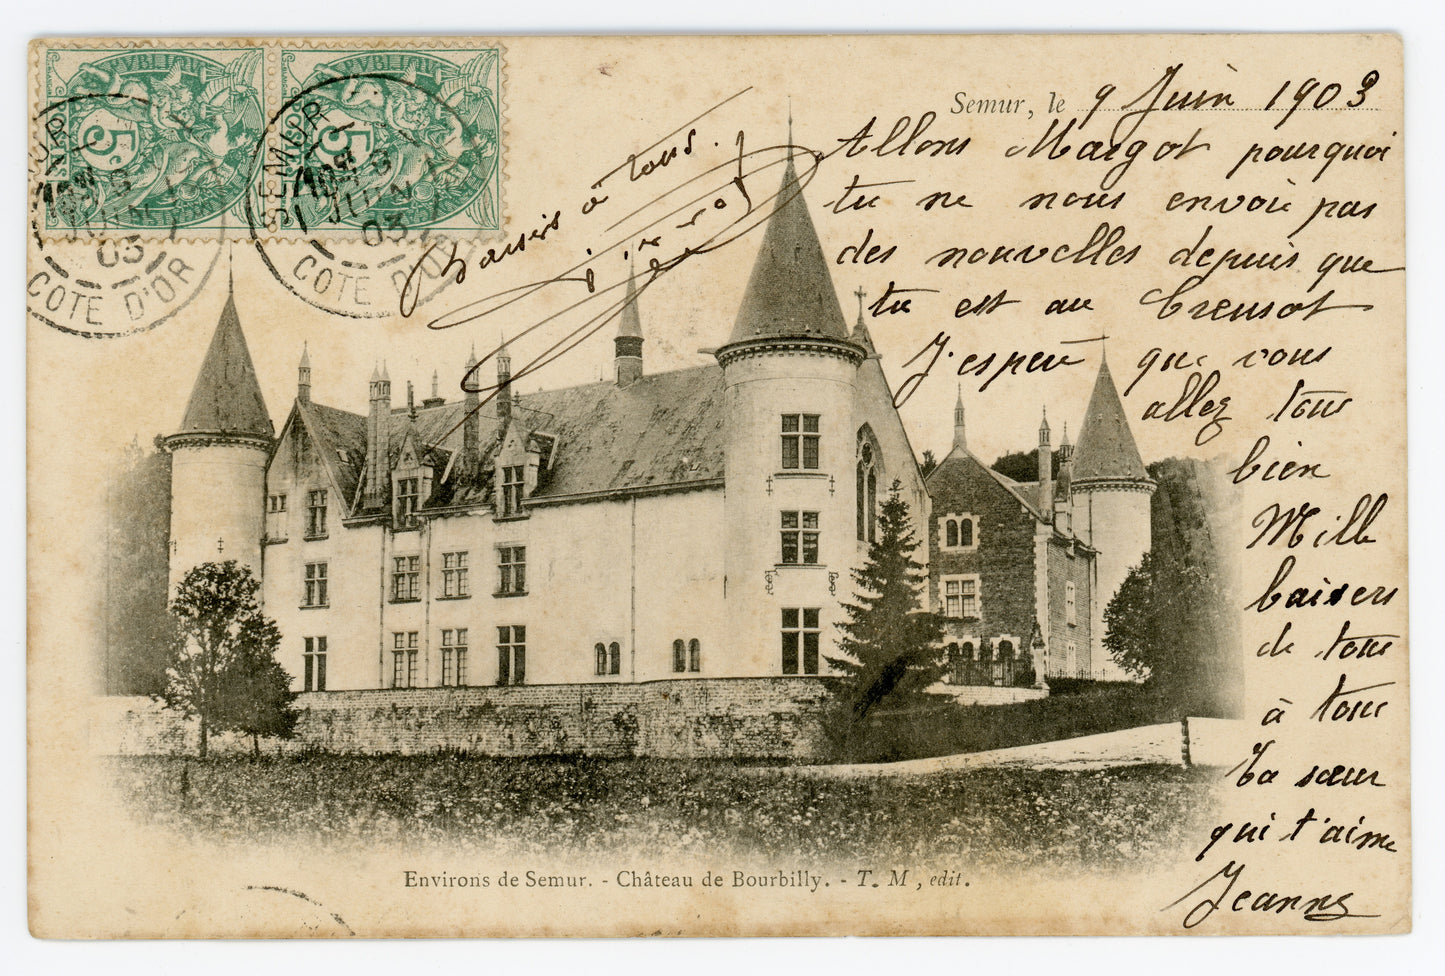 RÉPUBLIQUE
5
RÉPUBLIQUE
5
SEMUR
9
JUIN
03
COTE D'OR
SEMUR
9
JUIN
03
COTE D'OR
Baisers à tous.
Semur, le 9 Juin 1903
Allons Margot pourquoi
tu ne nous envoie pas
des nouvelles depuis que
tu est au Creusot
J'espère que vous
allez tous
bien
Mille
baisers
de tous
à tous
Ta sœur
qui t'aime
Jeanne
Environs de Semur. - Château de Bourbilly. - T. M, edit.